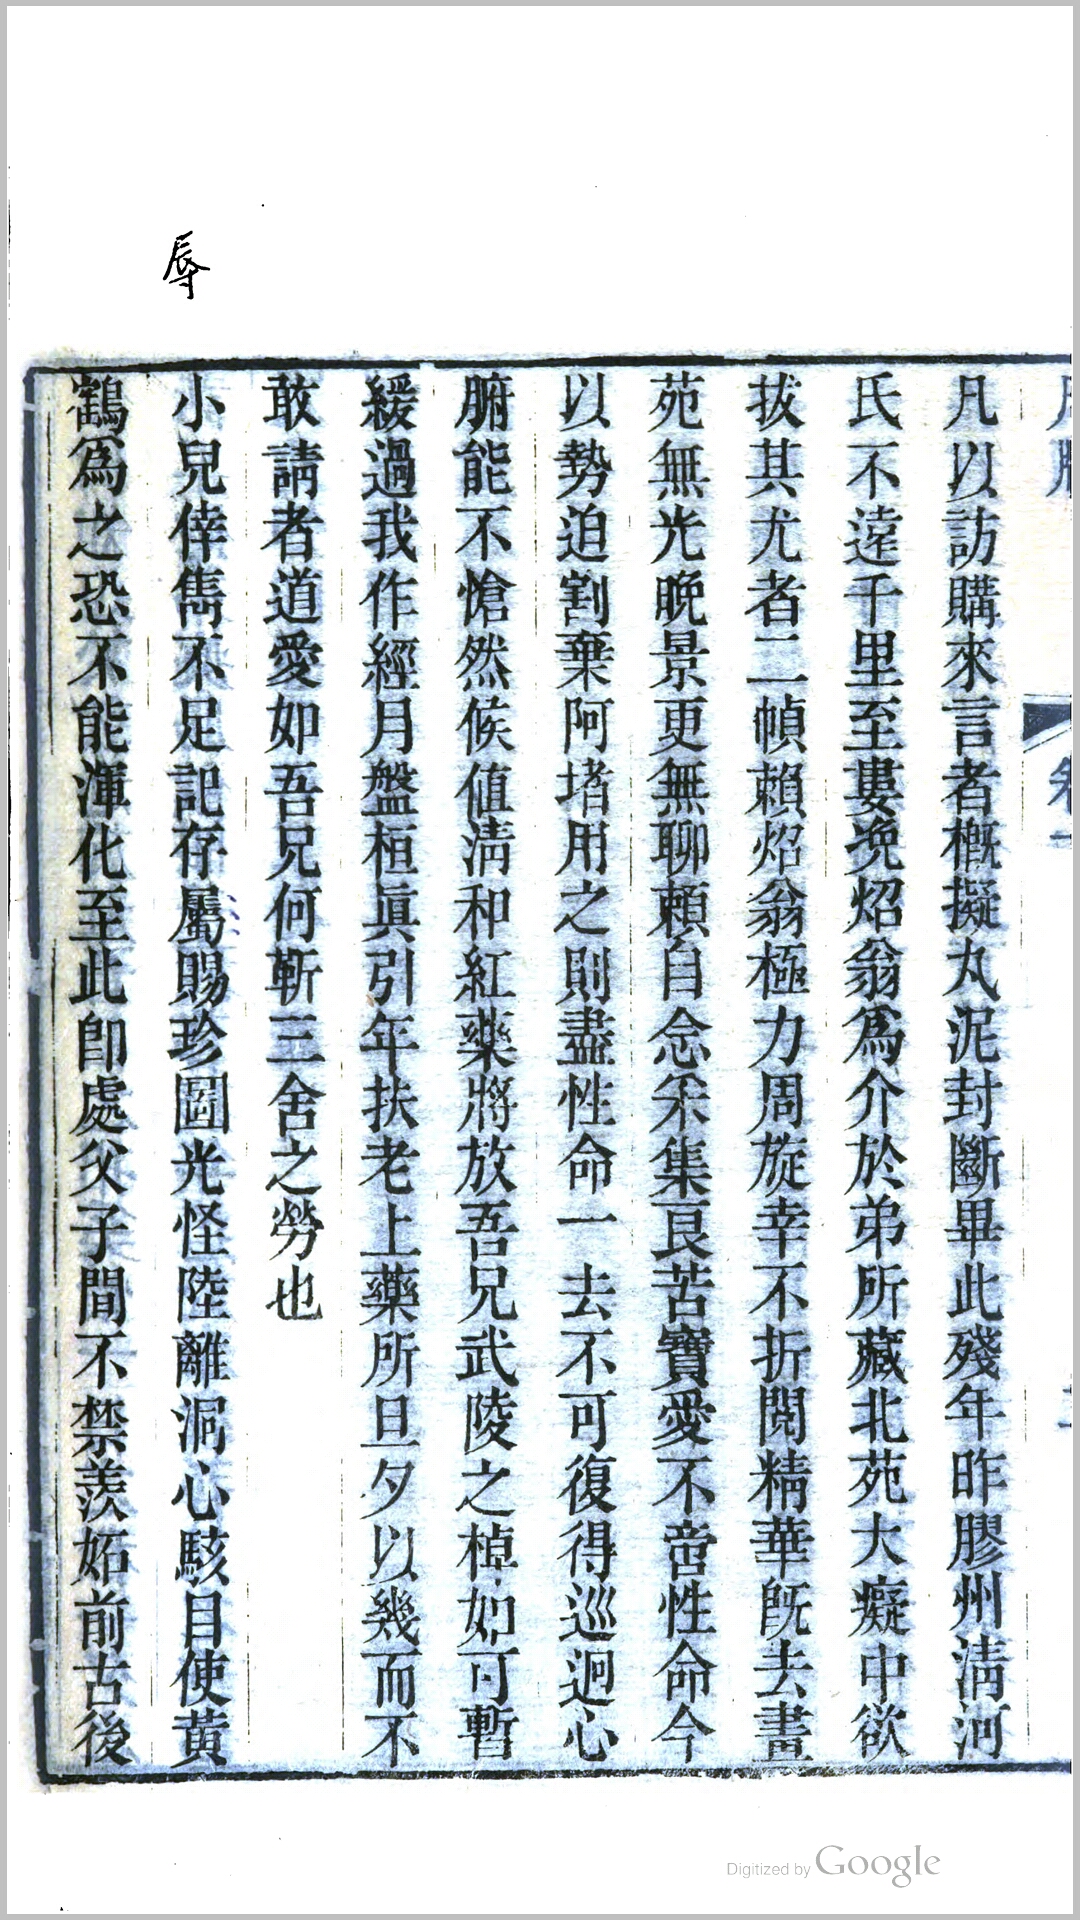 凡以訪購來言者概擬丸泥封斷畢此殘年昨膠州淸河
氏不遠千里至婁浼炤翁爲介於弟所藏北苑大癡中欲
拔其尤者二幀賴炤翁極力周旋幸不折閱精華旣去畫
苑無光晚景更無聊賴自念釆集艮苦寶愛不啻性命今
以勢迫割棄阿堵用之則盡性命一去不可復得巡迴心
腑能不愴然候值淸和紅藥將放吾兄武陵之棹如可暫
緩過我作經月盤桓眞引年扶老上藥所旦夕以幾而不
敢請者道愛如吾兄何靳三舍之勞也
小兒倖雋不足記存屬賜珍圖光怪陸離洞心駭目使黃
鶴爲之恐不能渾化至此卽處父子間不禁羨妬前古後
辱
Digitized by Google